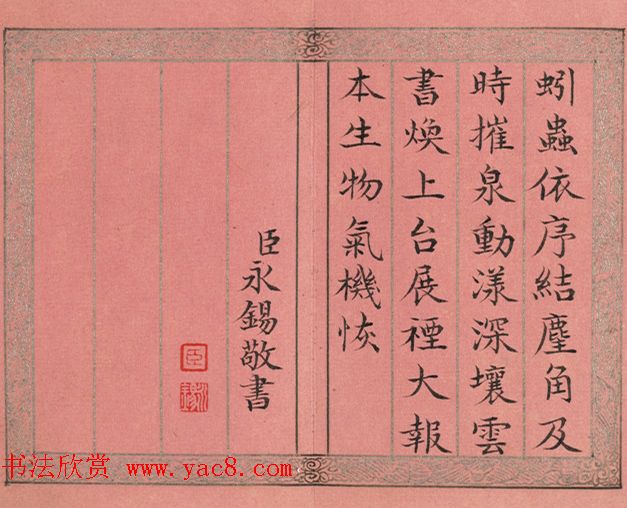 蚓蟲依序結麈角及
時摧泉動漾深壤雲
書煥上台展禋大報
本生物氣機恢
臣永錫敬書
臣
永錫
书法欣赏 www.yac8.com